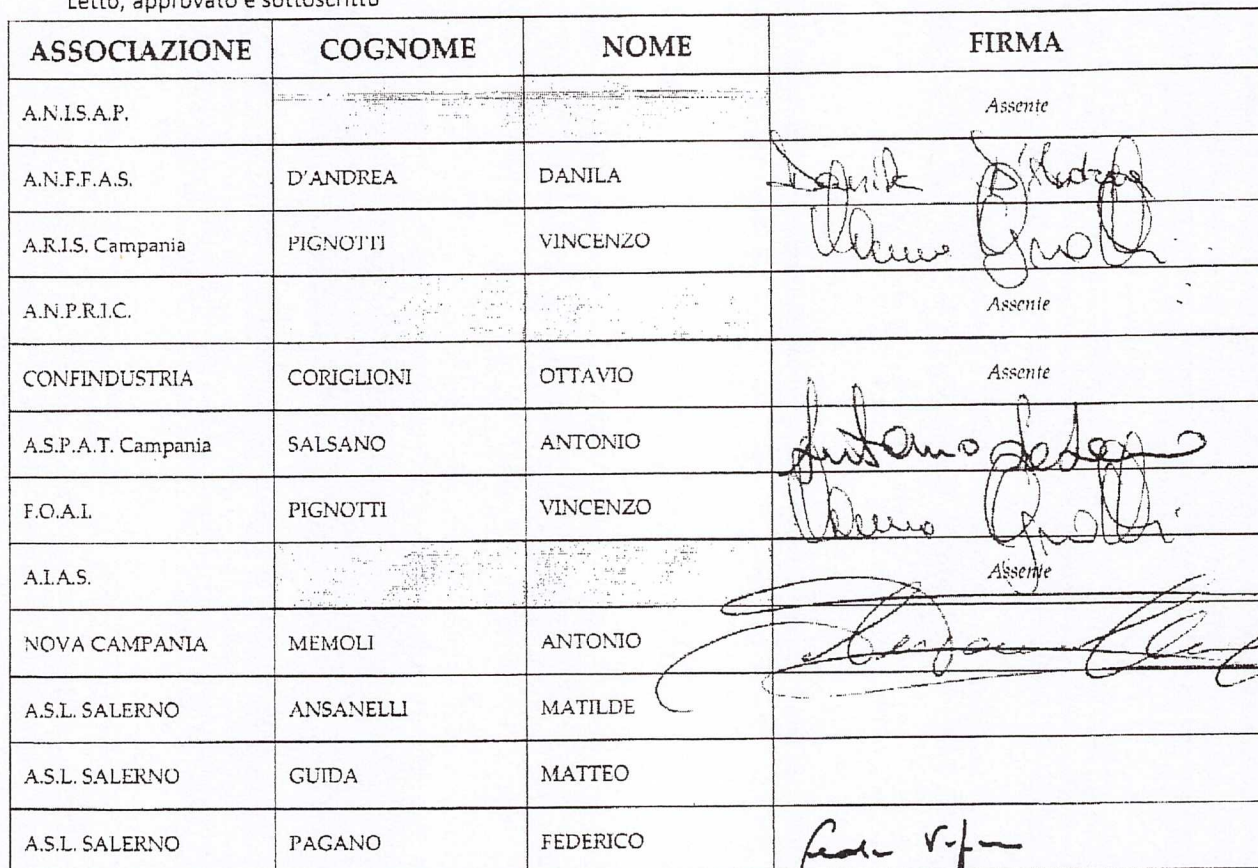 Letto, approvato e sottoscritto
ASSOCIAZIONE COGNOME NOME FIRMA
A.N.I.S.A.P. Assente
A.N.F.F.A.S. D'ANDREA DANILA Danila D'Andrea
A.R.I.S. Campania PIGNOTTI VINCENZO
A.N.P.R.I.C. Assente
CONFINDUSTRIA CORIGLIONI OTTAVIO Assente
A.S.P.A.T. Campania SALSANO ANTONIO Antonio Salsano
F.O.A.I. PIGNOTTI VINCENZO
A.I.A.S. Assente
NOVA CAMPANIA MEMOLI ANTONIO
A.S.L. SALERNO ANSANELLI MATILDE
A.S.L. SALERNO GUIDA MATTEO
A.S.L. SALERNO PAGANO FEDERICO